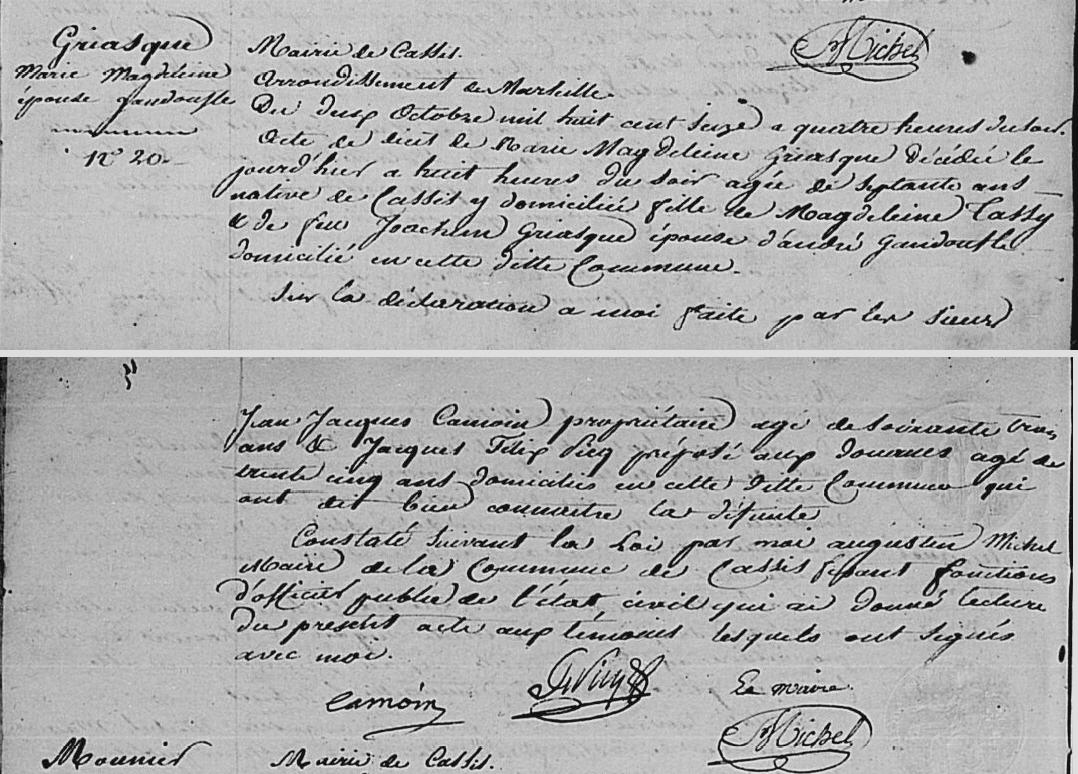 Michel
Griasque
Marie Magdeleine
épouse gandoufle
n° 20
Mairie de Cassis.
Arrondissement de Marseille.
Du deux Octobre mil huit cent seize a quatre heures du soir.
Acte de décès de Marie Magdeleine Griasque décédée le
jourd'hier a huit heures du soir agée de septante ans
native de Cassis y domiciliée fille de Magdeleine Tassy
& de feu Joachim Griasque épouse d'andré gandoufle
domicilié en cette ditte Commune.
Sur la déclaration a moi faite par les sieurs
Jean Jacques Camoin propriétaire agé de soixante trois
ans & Jacques Felix Picq préposé aux douanes agé de
trente cinq ans domiciliés en cette ditte Commune qui
ont dit bien connaitre la défunte
Constaté suivant la Loi par moi augustin Michel
Maire de la Commune de Cassis fesant fonctions
d'officier public de l'état civil qui ai donné lecture
du présent acte aux témoins lesquels ont signés
avec moi.
Camoin
Le maire
Michel
Mounier
Mairie de Cassis.